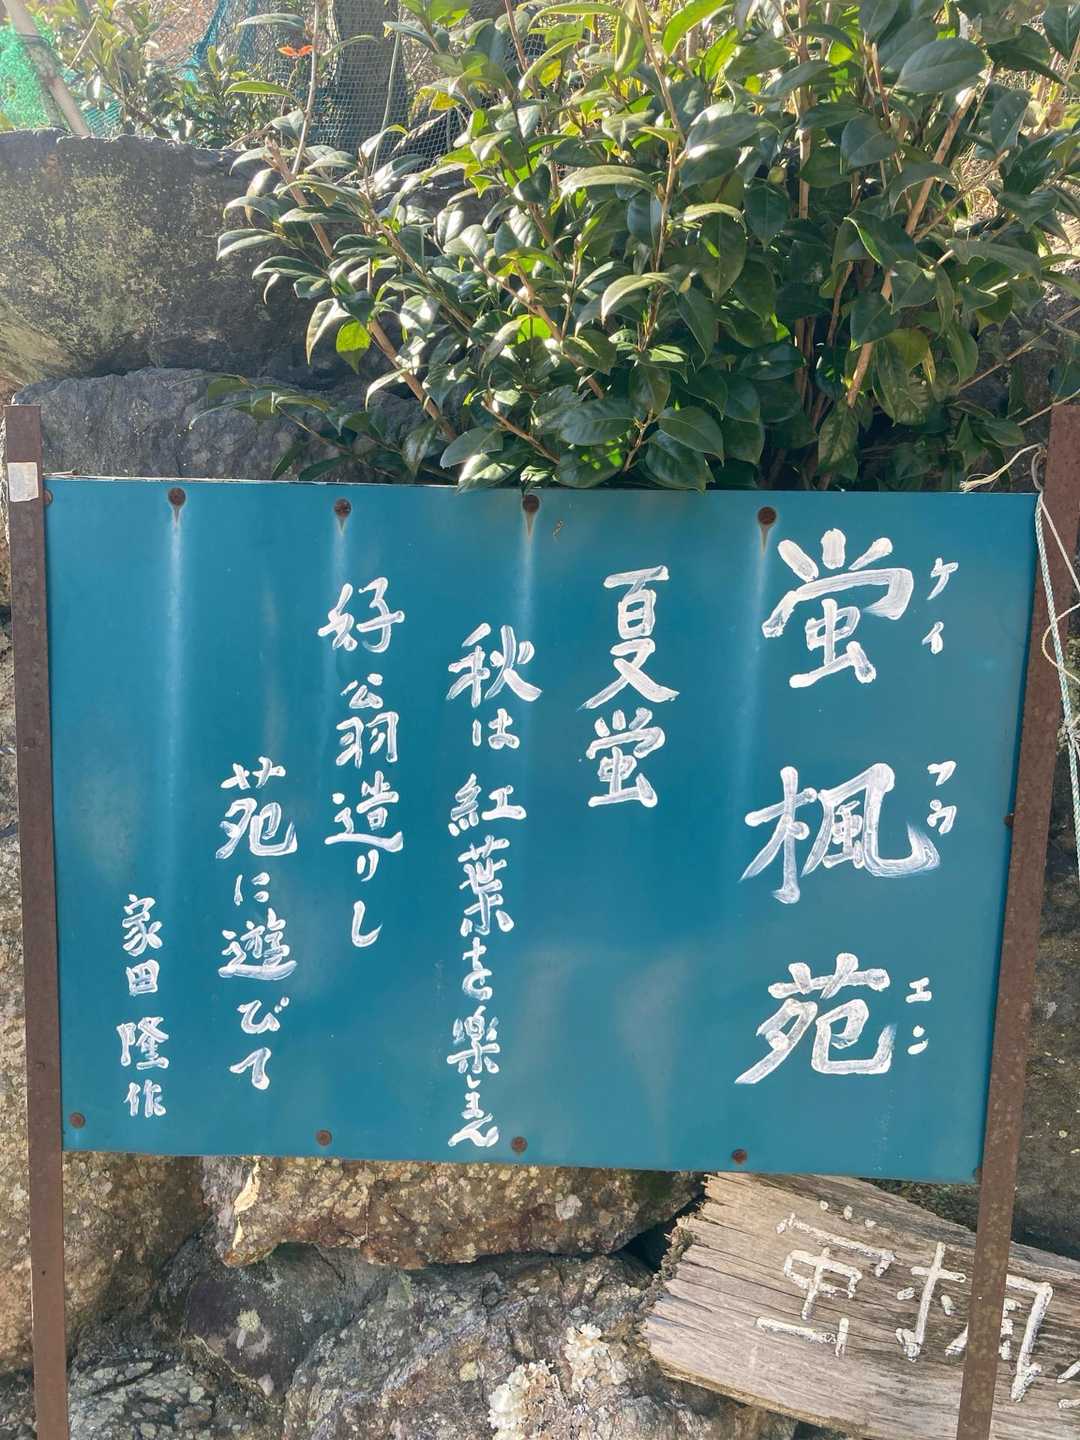 蛍楓苑
ケイ フウ エン
夏蛍
秋は紅葉を楽しまん
好翁造りし
苑に遊びて
家田隆作
蛍楓